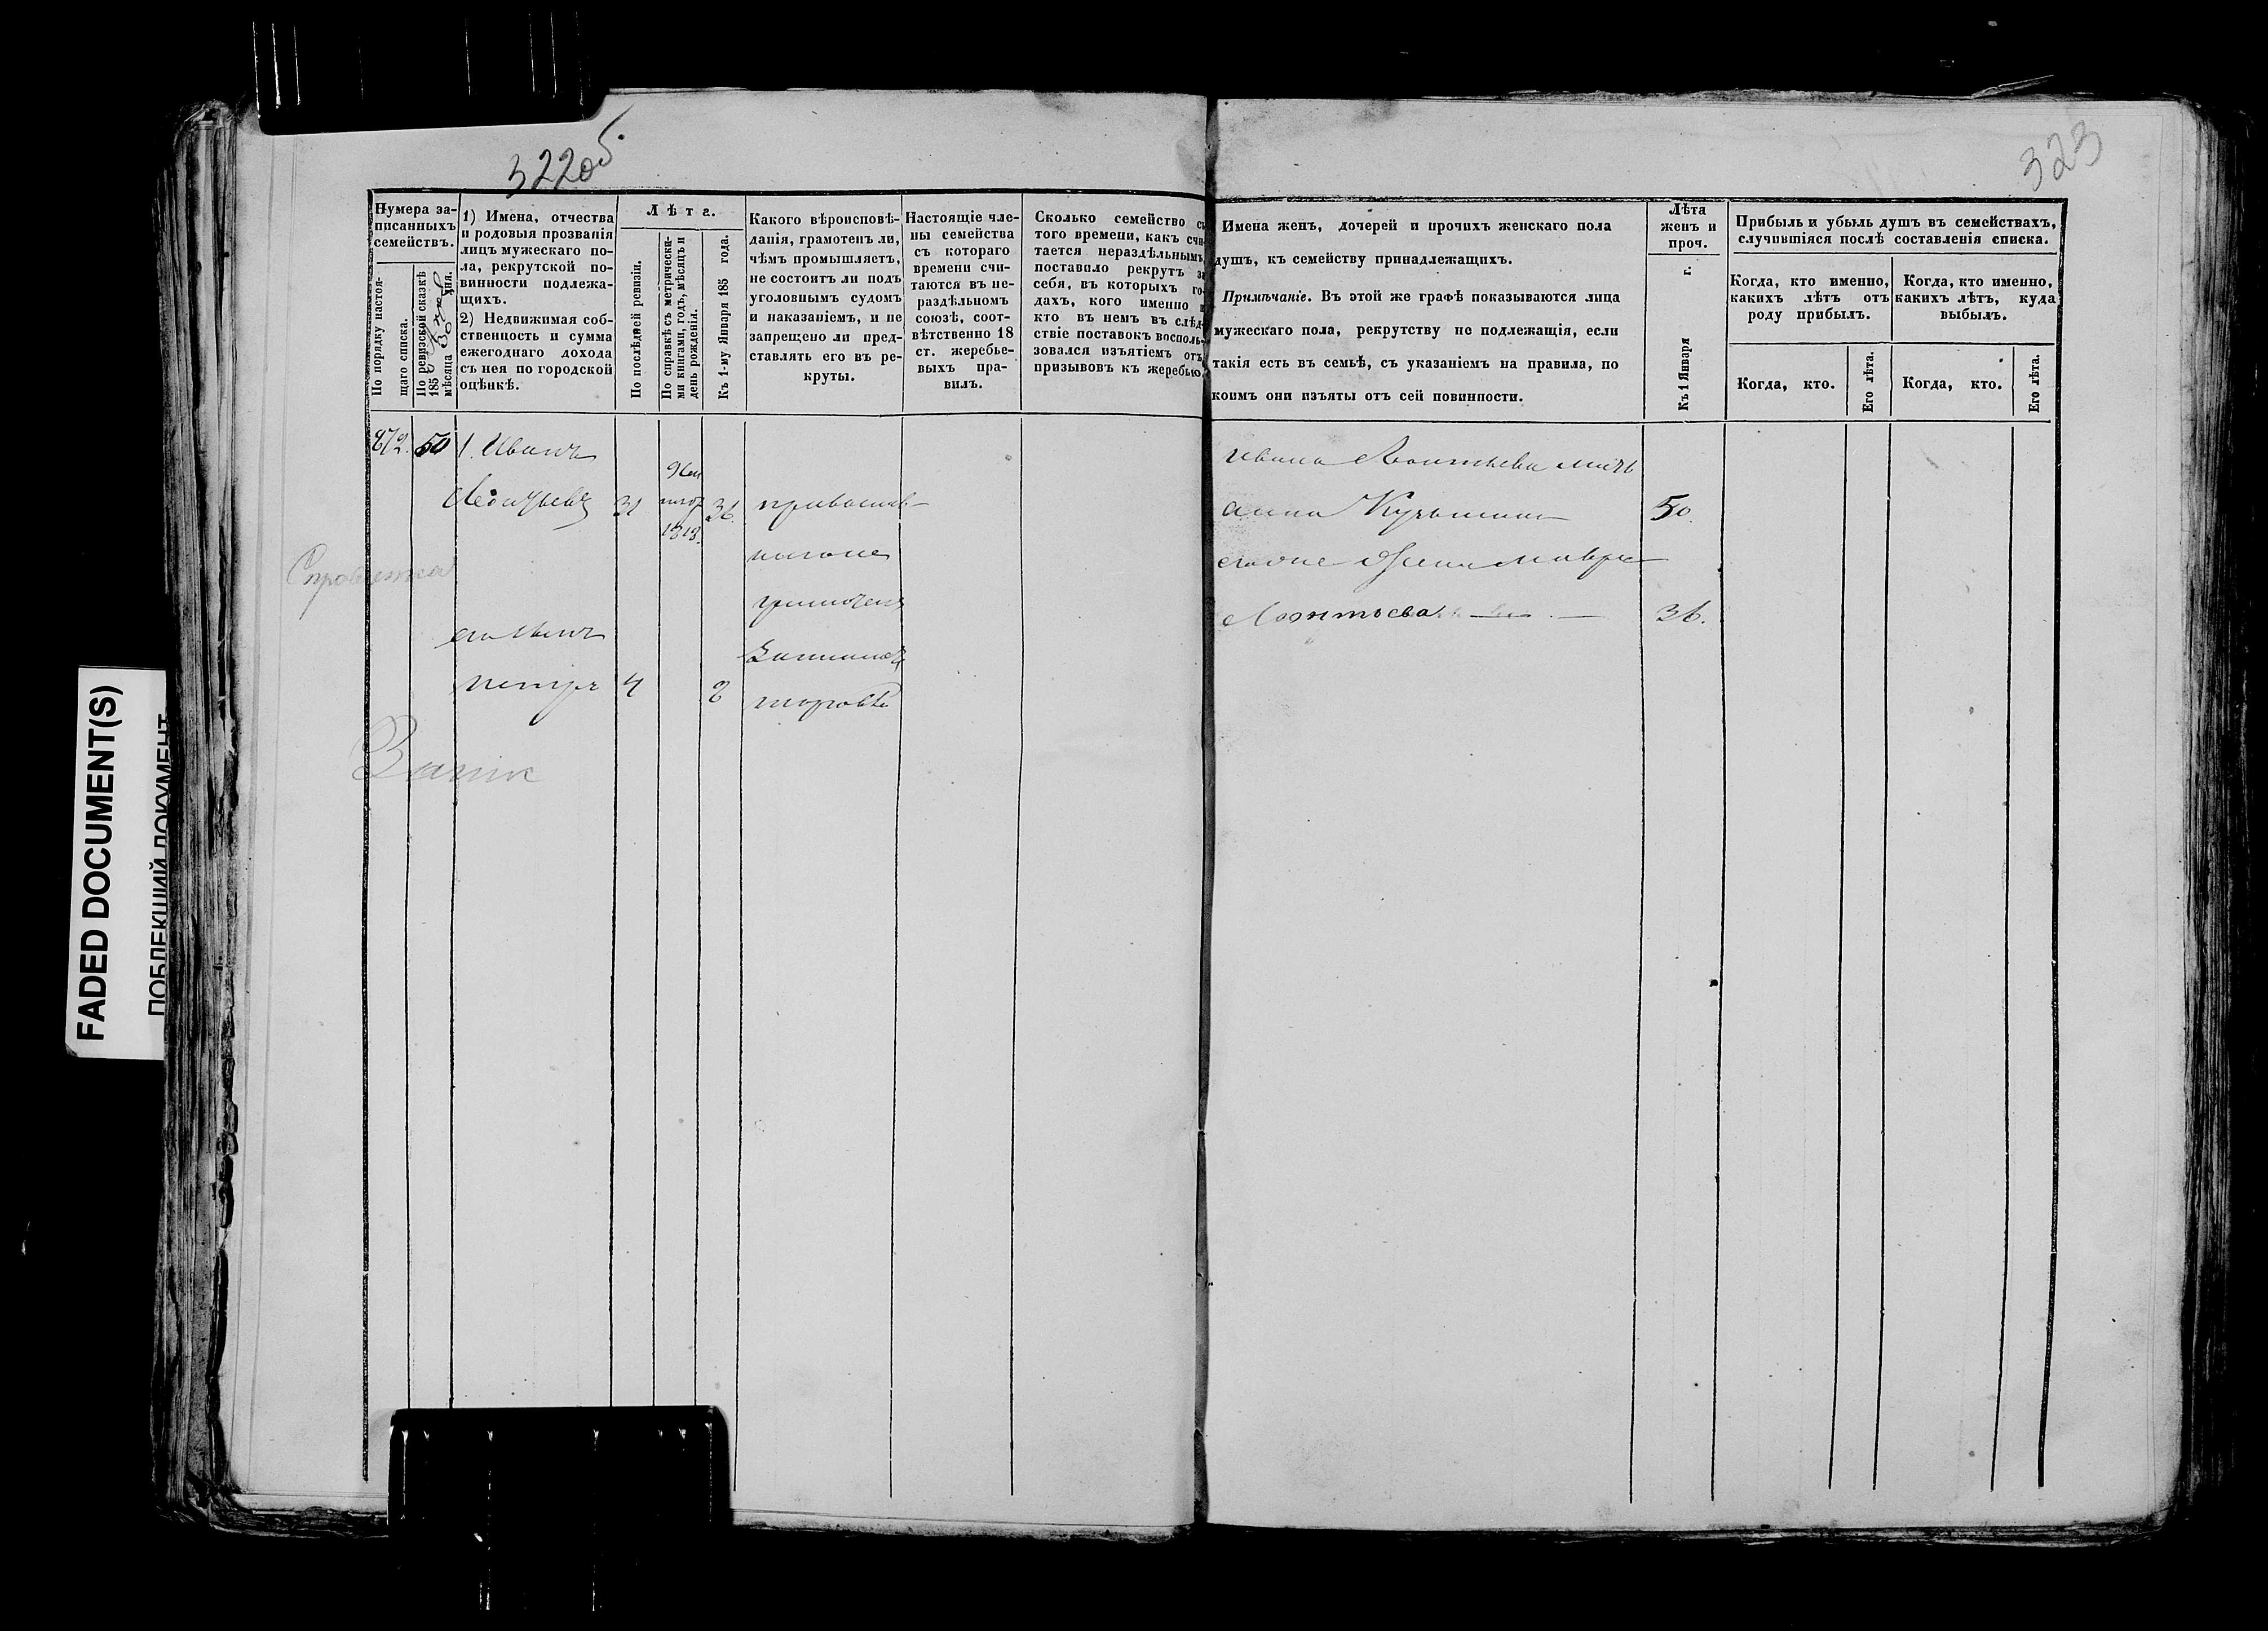 322 об.
323
Нумера записанныхъ семействъ.
По порядку настоящаго списка.
По ревизской сказкѣ 185 мѣсяца 30 дня.
1) Имена, отчества
и родовыя прозванія
лицъ мужескаго по-
ла, рекрутской по-
винности подлежа-
щихъ.
2) Недвижимая соб-
ственность и сумма
ежегоднаго дохода
съ нея по городской
оцѣнкѣ.
Лѣта.
По послѣдней ревизіи.
По справкѣ съ метрически-
ми книгами, годъ, мѣсяцъ и
день рожденія.
Къ 1-му Января 185 года.
Какого вѣроисповѣ-
данія, грамотенъ ли,
чѣмъ промышляетъ,
не состоитъ ли подъ
уголовнымъ судомъ
и наказаніемъ, и не
запрещено ли пред-
ставлять его въ ре-
круты.
Настоящіе чле-
ны семейства
съ котораго
времени счи-
таются въ не-
раздѣльномъ
союзѣ, соот-
вѣтственно 18
ст. жеребье-
выхъ пра-
вилъ.
Сколько семейство съ
того времени, какъ счи-
тается нераздѣльнымъ,
поставило рекрутъ за
себя, въ которыхъ го-
дахъ, кого именно и
кто въ немъ въ слѣд-
ствіе поставокъ восполь-
зовался изъятіемъ отъ
призывовъ къ жеребью.
Имена женъ, дочерей и прочихъ женскаго пола
душъ, къ семейству принадлежащихъ.
Примѣчаніе. Въ этой же графѣ показываются лица
мужескаго пола, рекрутству не подлежащія, если
такія есть въ семьѣ, съ указаніемъ на правила, по
коимъ они изъяты отъ сей повинности.
Лѣта
женъ и
проч.
Къ 1 Января г.
Прибыль и убыль душъ въ семействахъ,
случившіяся послѣ составленія списка.
Когда, кто именно,
какихъ лѣтъ отъ
роду прибылъ.
Когда, кто именно,
какихъ лѣтъ, куда
выбылъ.
Когда, кто.
Его лѣта.
Когда, кто.
Его лѣта.
872. 50 1. Иванъ
Леонтьевъ 31 1818. 36. православ-
наго
грамотенъ
его сынъ
Петръ 4 8 торговлѣ
Ивана Леонтьева мать
Анна Кузьмина 50.
его жена Мавра
Леонтьева 36.
Справиться
FADED DOCUMENT(S)
ПОБЛЕКШИЙ ДОКУМЕНТ